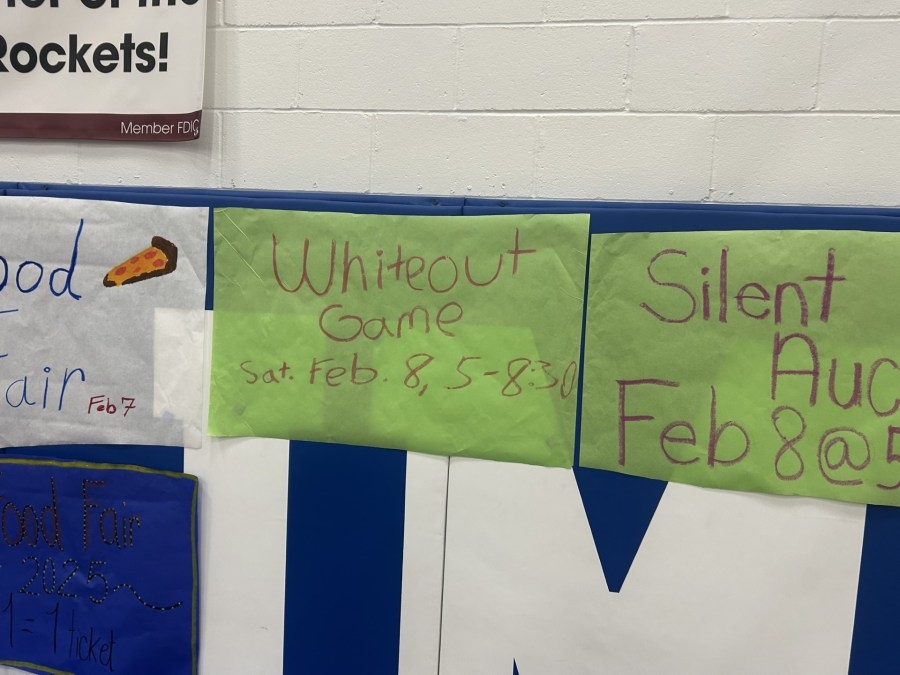 Rockets!
Member FDIC
ood
Fair
Feb 7
Whiteout
Game
Sat. Feb. 8, 5-8:30
Silent
Auc
Feb 8@5
ood Fair
2025
1=1 ticket